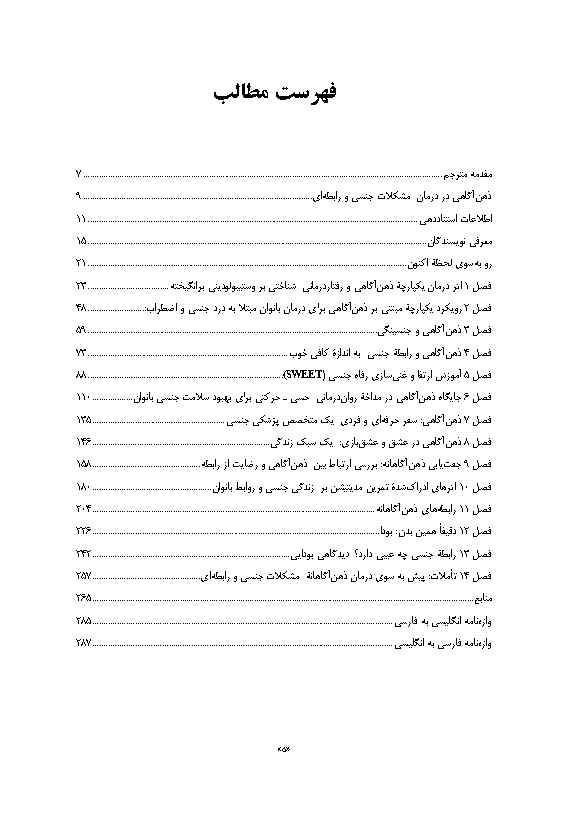 فهرست مطالب
مقدمه مترجم ۷
ذهن‌آگاهی در درمان مشکلات جنسی و رابطه‌ای ۹
اطلاعات استناددهی ۱۱
معرفی نویسندگان ۱۵
رو به‌سوی لحظهٔ اکنون ۲۱
فصل ۱ اثر درمان یکپارچهٔ ذهن‌آگاهی و رفتاردرمانی شناختی بر وستیبولودینی برانگیخته ۲۳
فصل ۲ رویکرد یکپارچهٔ مبتنی بر ذهن‌آگاهی برای درمان بانوان مبتلا به درد جنسی و اضطراب: ۴۸
فصل ۳ ذهن‌آگاهی و جنسینگی ۵۹
فصل ۴ ذهن‌آگاهی و رابطهٔ جنسی به اندازهٔ کافی خوب ۷۳
فصل ۵ آموزش ارتقا و غنی‌سازی رفاه جنسی (SWEET) ۸۸
فصل ۶ جایگاه ذهن‌آگاهی در مداخلهٔ روان‌درمانی حسی ـ حرکتی برای بهبود سلامت جنسی بانوان ۱۱۰
فصل ۷ ذهن‌آگاهی: سفر حرفه‌ای و فردی یک متخصص پزشکی جنسی ۱۳۵
فصل ۸ ذهن‌آگاهی در عشق و عشق‌بازی: یک سبک زندگی ۱۴۶
فصل ۹ جفت‌یابی ذهن‌آگاهانه: بررسی ارتباط بین ذهن‌آگاهی و رضایت از رابطه ۱۵۸
فصل ۱۰ اثرهای ادراک‌شدهٔ تمرین مدیتیشن بر زندگی جنسی و روابط بانوان ۱۸۰
فصل ۱۱ رابطه‌های ذهن‌آگاهانه ۲۰۴
فصل ۱۲ دقیقاً همین بدن: بودا ۲۲۶
فصل ۱۳ رابطهٔ جنسی چه عیبی دارد؟ دیدگاهی بودایی ۲۴۲
فصل ۱۴ تأملات: پیش به سوی درمان ذهن‌آگاهانهٔ مشکلات جنسی و رابطه‌ای ۲۵۷
منابع ۲۶۵
واژه‌نامه انگلیسی به فارسی ۲۸۵
واژه‌نامه فارسی به انگلیسی ۲۸۷